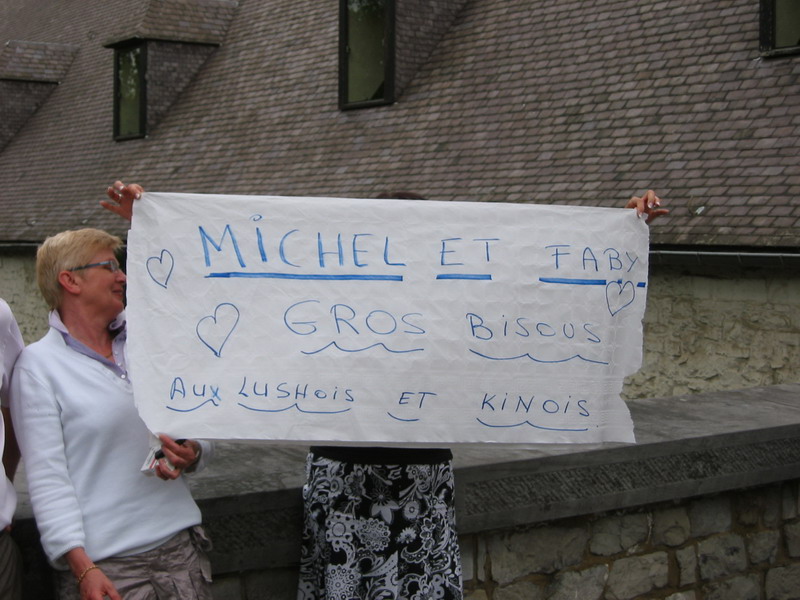 MiCHEL ET FABY
GROS BiSCUS
AUX LUSHOiS ET KiNOiS